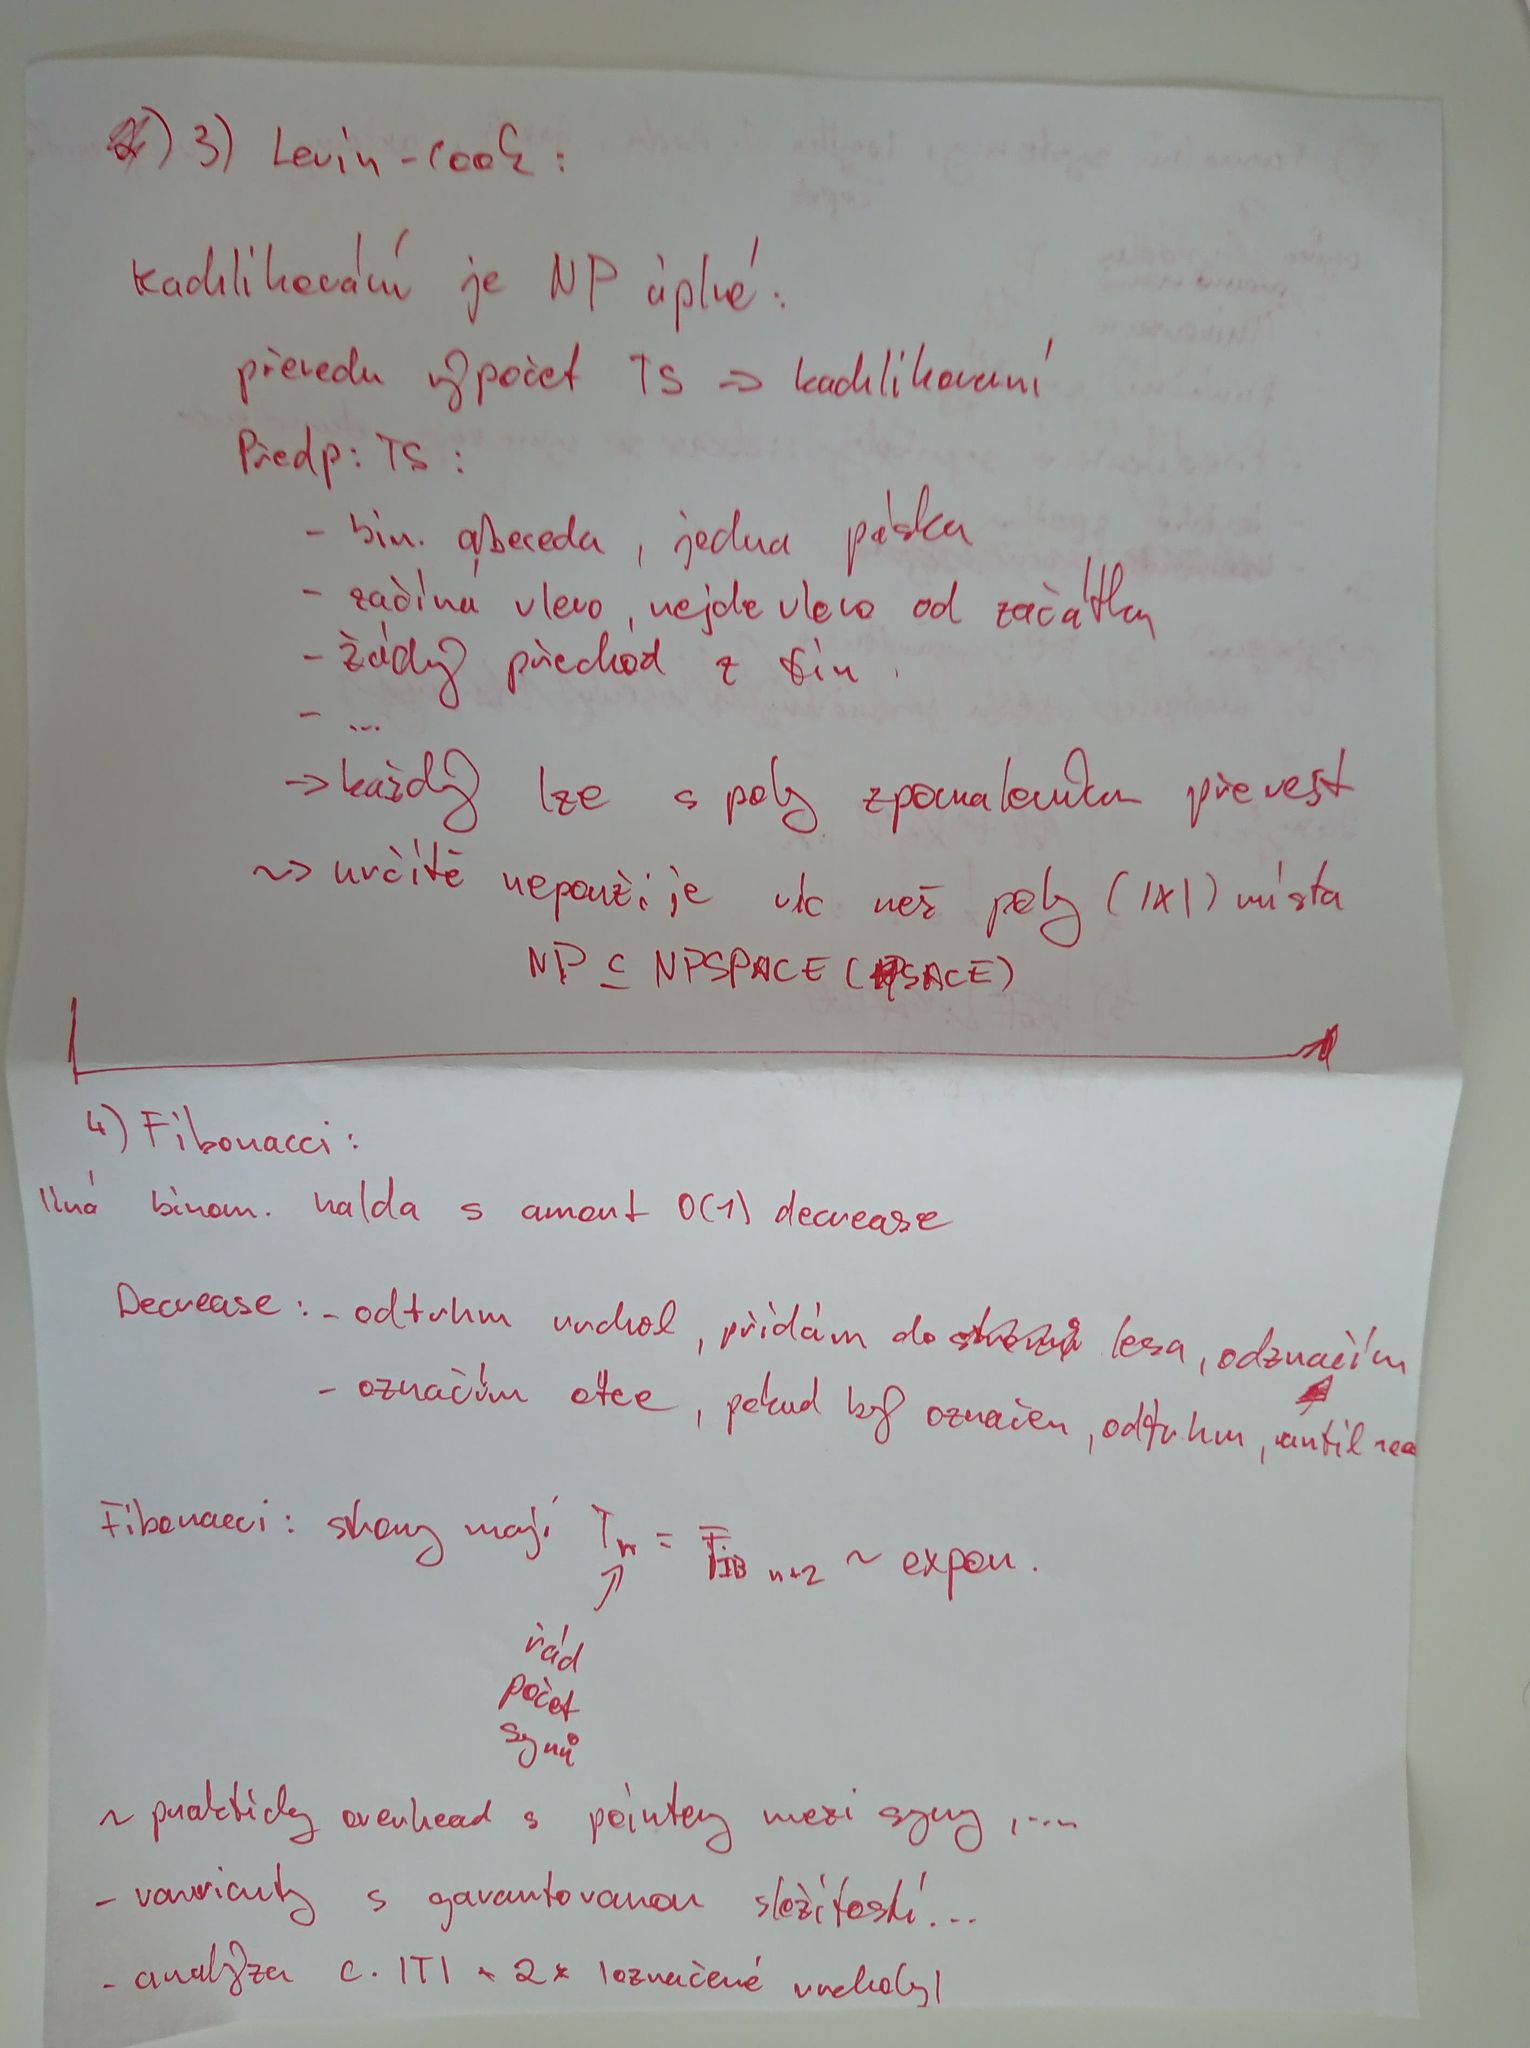 3) Levin-Cook:
Kachlíkování je NP úplné:
převedu výpočet TS => kachlíkování
Předp: TS:
- bin. abeceda, jedna páska
- začíná vlevo, nejde vlevo od začátku
- žádný přechod z fin.
- ...
-> každý lze s poly zpomalením převést
~> určitě nepoužije víc než poly (|x|) místa
NP ⊆ NPSPACE (PSACE)
4) Fibonacci:
líná binom. halda s amort O(1) decrease
Decrease: - odtrhnu vrchol, přidám do lesa, odznačím
- označím otce, pokud byl označen, odtrhnu, until
Fibonacci: stromy mají Tn = FIB n+2 ~ expon.
řád
počet
synů
~ prakticky overhead s pointery mezi syny, ....
- varrianty s garantovanou složitostí...
- analýza c. |T| + 2 * |označené vrcholy|